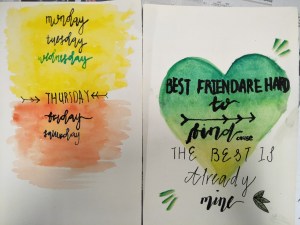 monday
tuesday
wednesday
THURSDAY
sunday
saturday
BEST FRIENDARE HARD
to
find
THE BEST IS
Already
mine